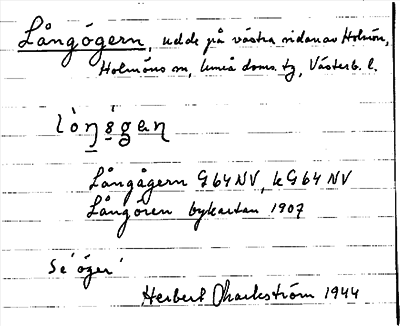 Långögern, udde på västra sidan av Holmön,
Holmöns sn, Umeå doms. tg, Västerb. l.
Långågern G64NV, kG64NV
Långören bykartan 1907
Se 'öger'
Herbert Markström 1944